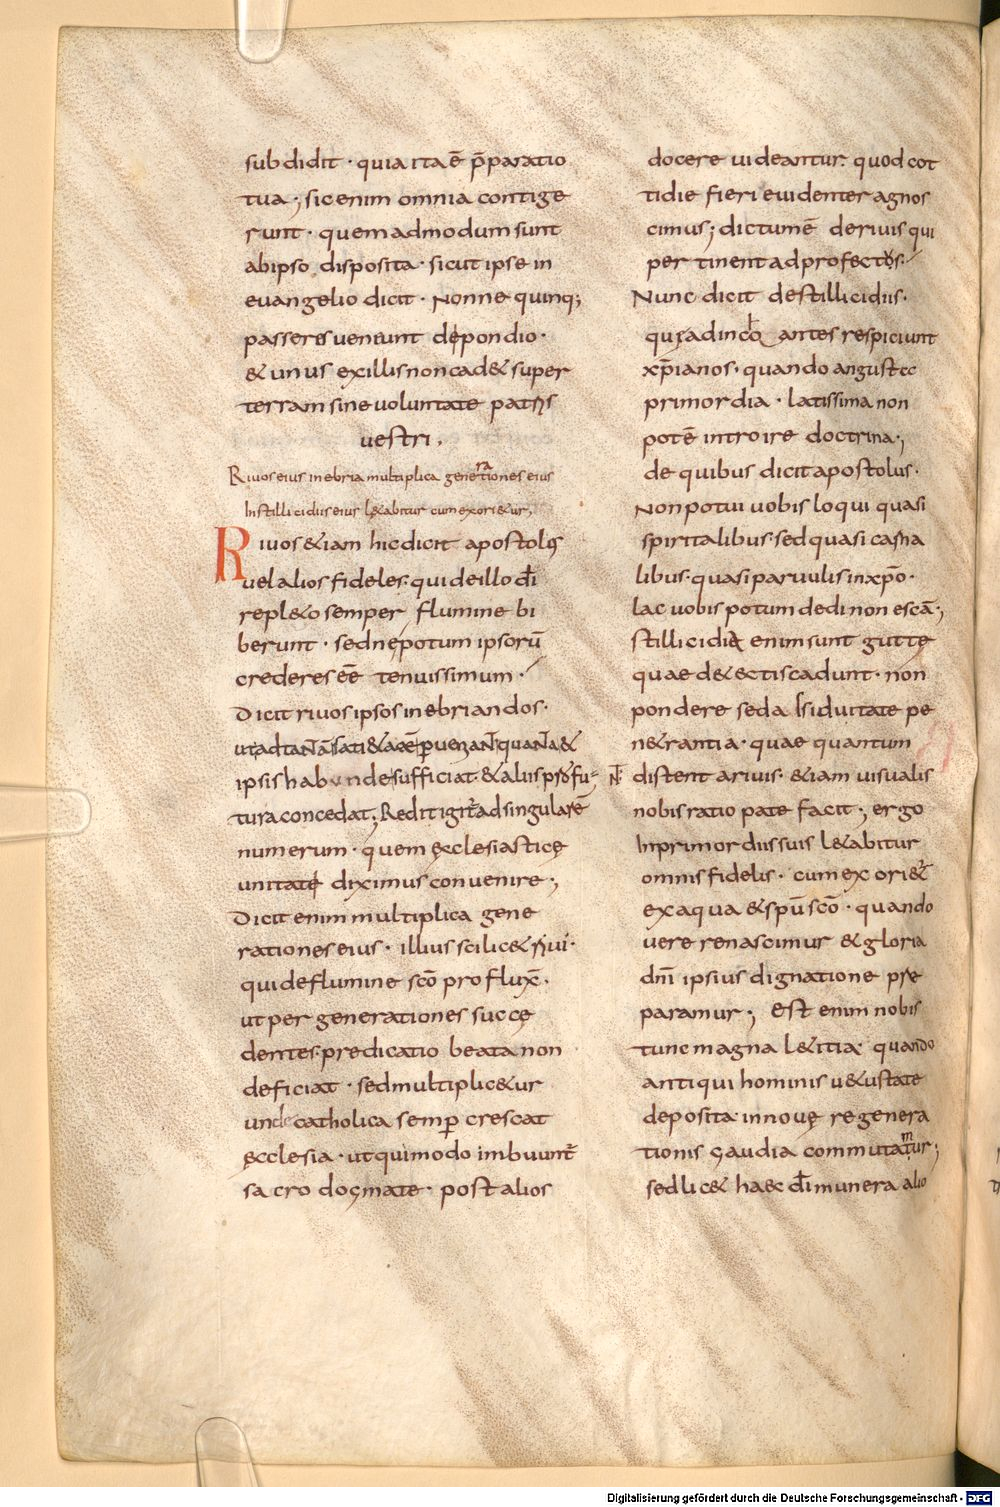 subdidit · quia ita ē p̄paratio
tua ; sic enim omnia contige
runt · quemadmodum sunt
ab ipso disposita · sicut ipse in
euangelio dicit · Nonne quinq;
passeres ueneunt depondio ·
& unus ex illis non cad& super
terram sine uoluntate patris
uestri .
Riuos eius inebria multiplica generationes eius
In stillicidiis eius l&abitur cum exori&ur ;
Riuos &iam hic dicit apostolis
uel alios fideles · qui de illo d̄i
repl&o semper flumine bi
berunt · sed ne potum ipsorū
crederes eē tenuissimum ·
Dicit riuos ipsos inebriandos ·
ipsis habunde sufficiat & aliis profu
tura concedat ; Redit igit̄ ad singularē
numerum · quem ęcclesiasticę
unitate diximus conuenire ;
Dicit enim multiplica gene
rationes eius · illius scilic& riui ·
qui de flumine sc̄o proflux̄ ·
ut per generationes succę
dentes · predicatio beata non
deficiat · sed multiplic&ur
unde catholica semp̄ crescat
ęcclesia · ut qui modo imbuunt̄
sacro dogmate · post alios
docere uideantur · quod cot
tidie fieri euidenter agnos
cimus ; dictum ē de riuis qui
pertinent ad profectos ·
Nunc dicit de stillicidiis ·
respiciunt
xp̄ianos · quando angustec
primordia · latissima non
potē introire doctrina ;
de quibus dicit apostolus ·
Non potui uobis loqui quasi
spiritalibus · sed quasi carna
libus · quasi paruulis in xp̄o ·
lac uobis potum dedi non escā ;
stillicidia enim sunt guttę
quae de tectis cadunt · non
pondere sed assiduitate pe
n&rantia · quae quantum
distent a riuis · &iam uisualis
nobis ratio patefacit ; ergo
In primordiis suis l&abitur
omnis fidelis · cum exori&̄
ex aqua & spū sc̄o · quando
uere renascimur & gloria
dn̄i ipsius dignatione pre
paramur ; est enim nobis
tunc magna l&itia · quando
antiqui hominis u&ustate
deposita · in nouę regenera
tionis gaudia commutamur ;
sed lic& haec d̄i munera alio
Digitalisierung gefördert durch die Deutsche Forschungsgemeinschaft - DFG